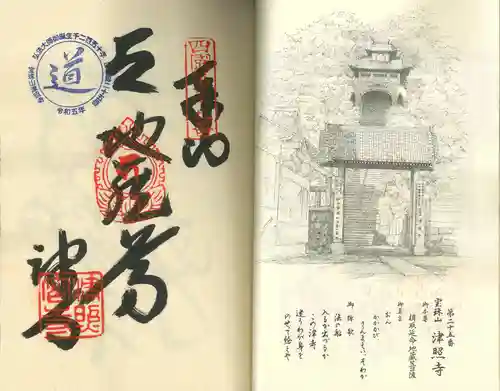 奉納
地蔵尊
道
弘法大師御誕生千二百五十年
令和五年
第二十五番
宝珠山 津照寺
御本尊
楫取延命地蔵菩薩
御真言
おん
かかかび
さんまえい そわか
御詠歌
法の船
入るか出づるか
この津寺
迷うわが身を
のせて給えや